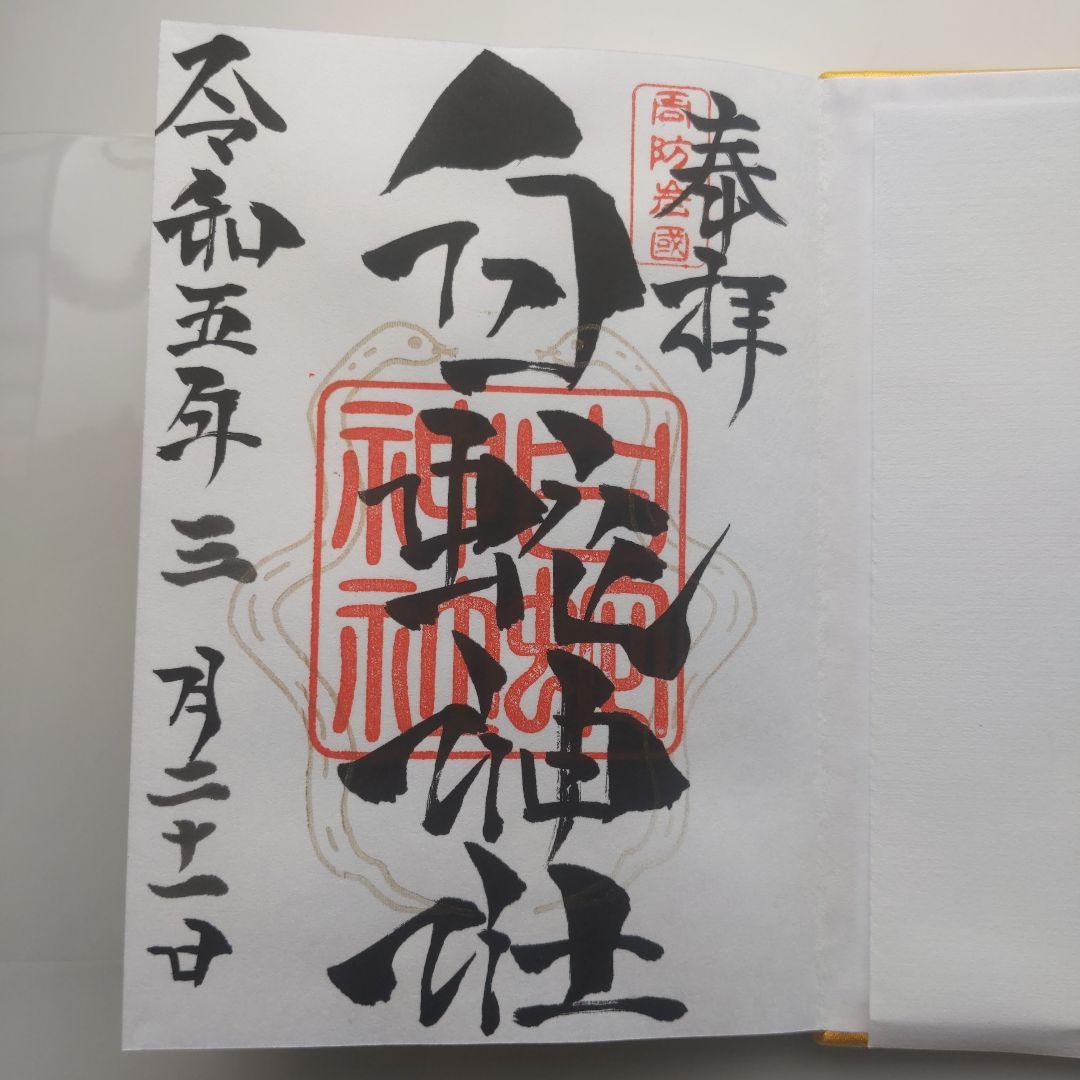 奉拝
周防岩國
白蛇神社
白蛇
神社
令和五年三月二十一日